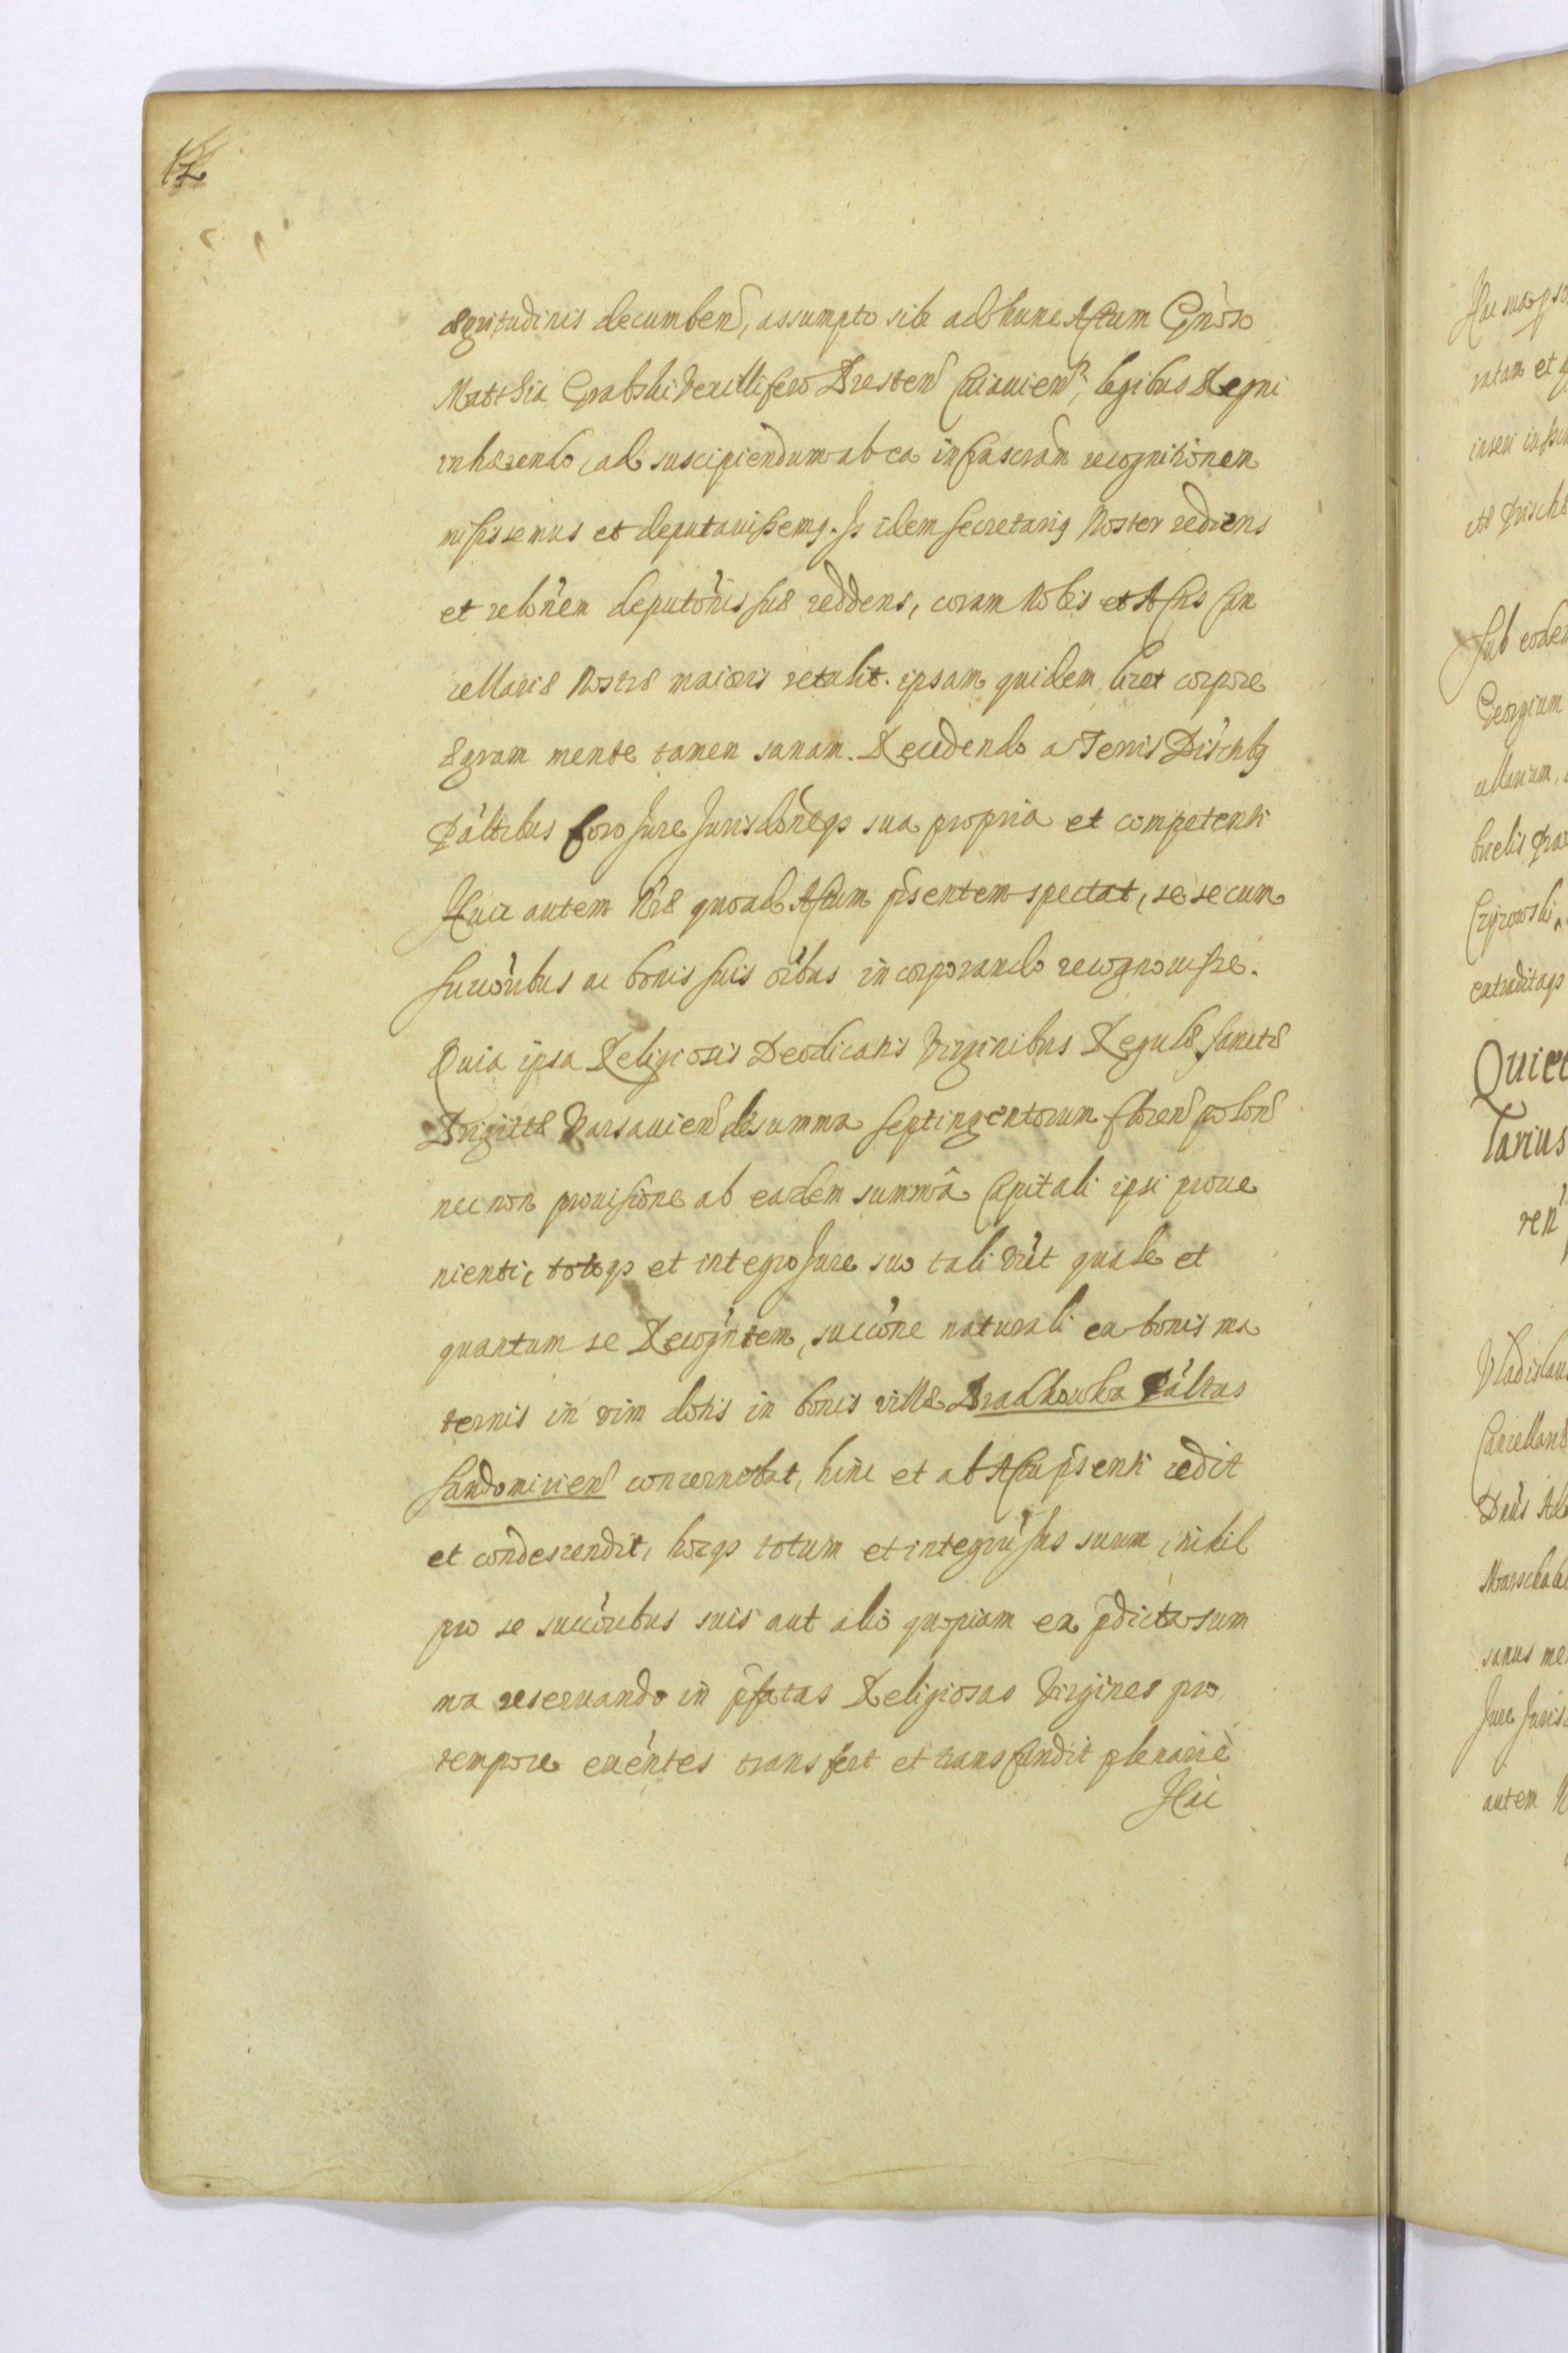 12
ægritudinis decumben, assumpto sibi ad hunc Actum Gnoso
Matthia Grabski Vexillifero Bresten Cuiauien, legibus Regni
inhærendo, ad suscipiendum ab ea infrascram recognitionem
misissemus et deputauissemq. Is idem Secretariq Noster rediens
et relonem deputonis suæ reddens, coram Nobis et Actis Can
cellariæ Nostræ maioris retulit. ipsam quidem licet corpore
ægram mente tamen sanam. Recedendo a Terris Districtbq
Palatibus foro Jure Jurisdoneqz sua propria et competenti
Huic autem Nræ quoad Actum psentem spectat, se se cum
Succoribus ac bonis suis oibus incorporando recognouisse.
Quia ipsa Religiosis Deodicatis Virginibus Regulæ Sanctæ
Brigittæ Varsauien de summa Septingentorum floren polon
nec non prouisione ab eadem summâ Capitali ipsi proue
nienti, totoqz et integro Jure suo tali vut quale et
quantum se Recogntem, succone naturali ex bonis ma
ternis in vim dotis in bonis villæ Brachowka Paltus
Sandomirien concernebat, hinc et ab Actu psenti cedit
et condescendit, hocqz totum et integru Jus suum, nihil
pro se succoribus suis aut alio quopiam ex pdicta sum
ma reseruando in pfatas Religiosas Virgines pro
tempore exentes transfert et transfundit plenarie
Hac
Hac
ratam et
inseri
Sub eodem
Georgium
Czyzowski
extraditaqz
Quiet
tarius
ren
Vladislaus
Cancellariæ
sanus me
Jure Juris
autem N